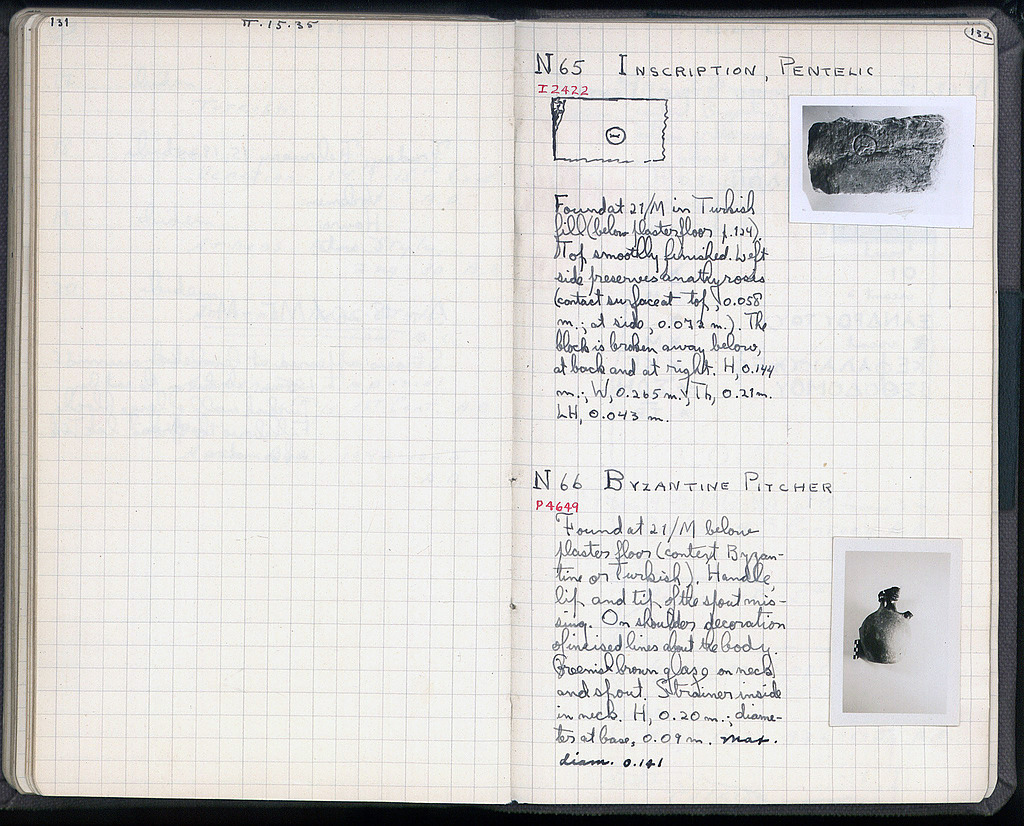 131
II.15.35
132
N65 INSCRIPTION, PENTELIC
I 2422
Found at 21/M in Turkish
fill (below plaster floor p.124).
Top smoothly finished. Left
side preserves anathyrosis
(contact surface at top, 0.058
m.; at side, 0.072 m.). The
block is broken away below,
at back and at right. H, 0.144
m.; W, 0.265 m.; Th, 0.21 m.
LH, 0.043 m.
N66 BYZANTINE PITCHER
P 4649
Found at 21/M below
plaster floor (context Byzan-
tine or Turkish). Handle,
lip and tip of the spout mis-
sing. On shoulder decoration
of incised lines about the body.
Greenish brown glaze on neck
and spout. Strainer inside
in neck. H, 0.20 m.; diame-
ter at base, 0.09 m. max.
diam. 0.141